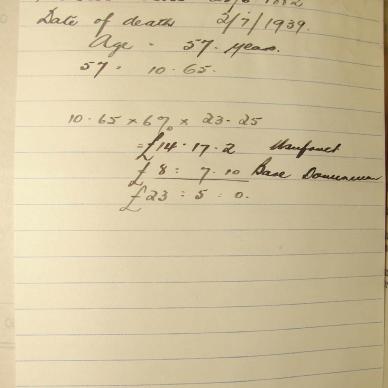 1882
Date of death 2/7/1939.
Age - 57. years.
57. 10.65.
10.65 x 6% x 23-25
= £14.17.2 Usufruct
£ 8 : 7.10 Bare Dominium
£ 23 : 5 : 0.